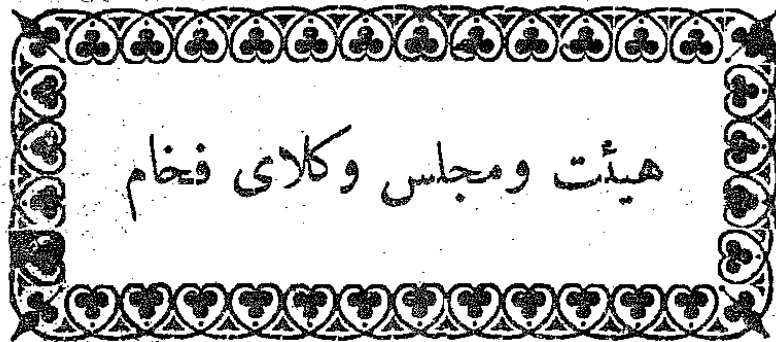 هيئت ومجلس وكلاى فخام